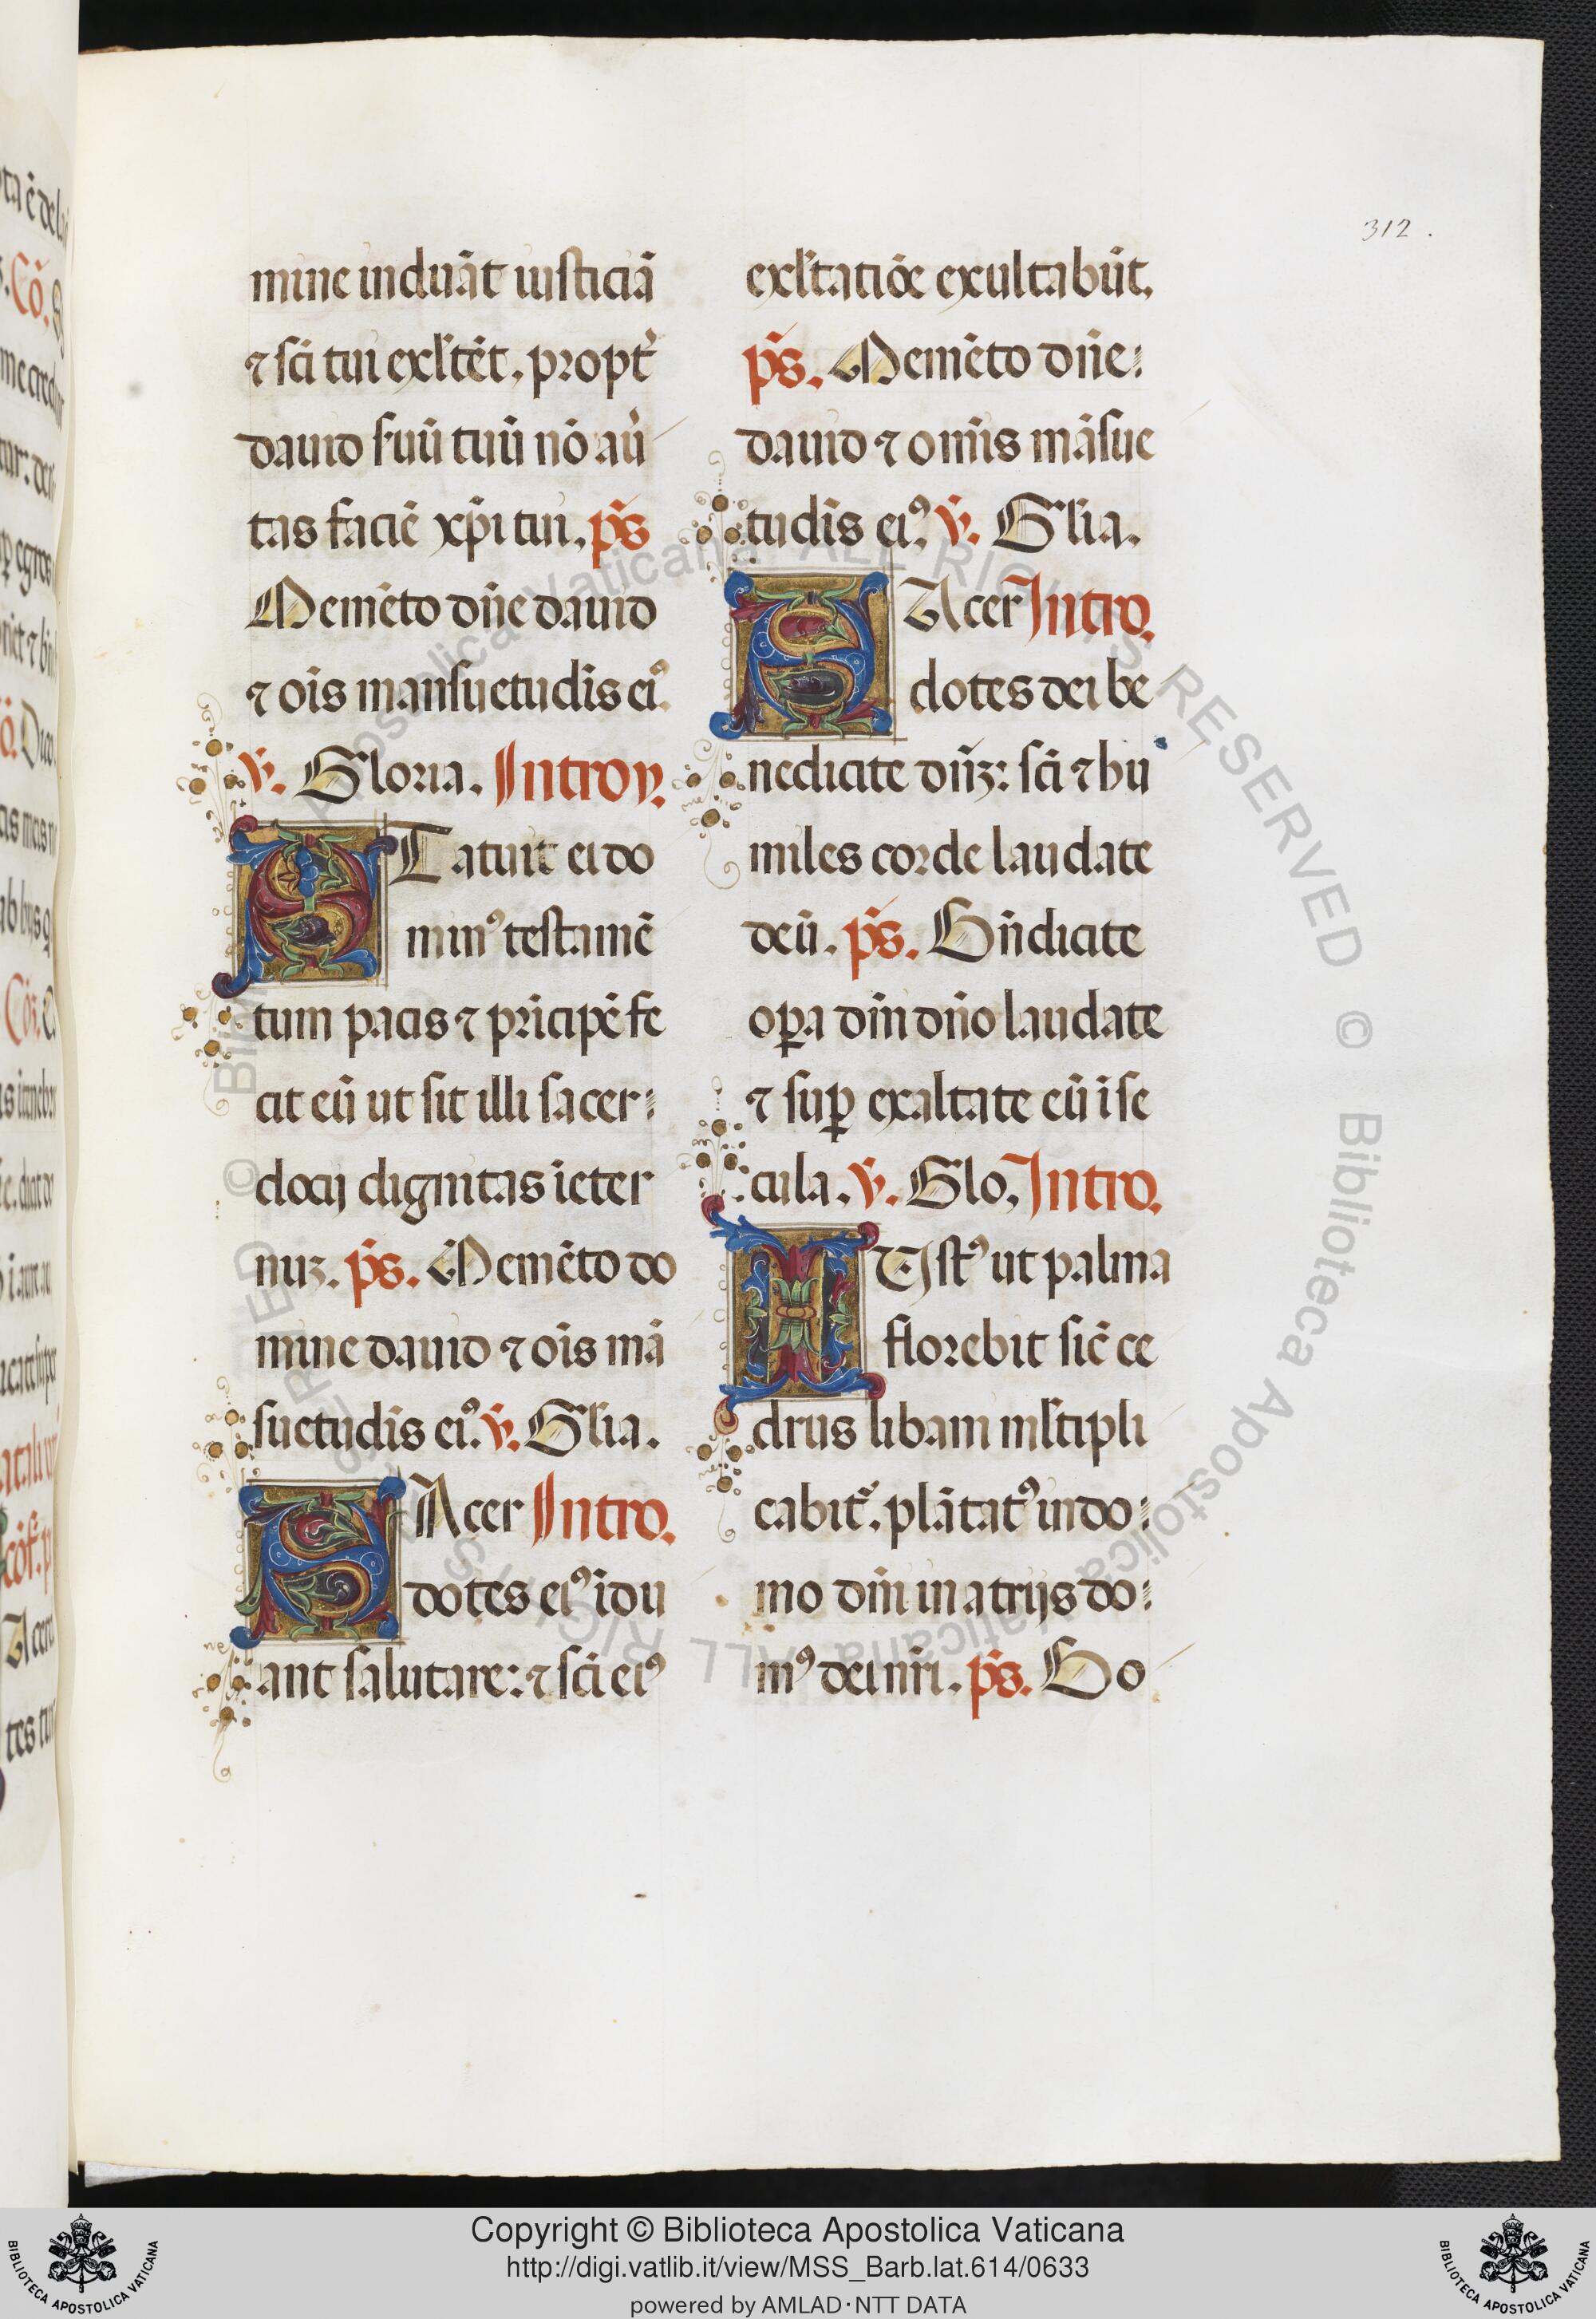 312.
mine induāt iusticiā
⁊ sc̄i tui exl̄tēt, propt̄
dauid s̄uū tuū nō au̇
tas faciē xp̄i tui, ps̄
Memēto dn̄e dauid
⁊ oīs mansuetudīs eiꝰ
v̄. Gloria. Introy.
STatuit ei do
minꝰ testamē
tum pacis ⁊ prīcipē fe
cit eū ut sit illi sacer
docij dignitas ī eter
nuz. ps̄. Memēto do
mine dauid ⁊ oīs mā
suetudīs eiꝰ. v̄. Gl̄ia.
SAcer Intro.
dotes eiꝰ īdu
ant salutare: ⁊ sc̄i eiꝰ
exl̄tatiōe exultabūt,
ps̄. Memēto dn̄e:
dauid ⁊ omīs māsue
tudīs eiꝰ, v̄. Gl̄ia.
SAcer Intro.
dotes dei be
nedicite dn̄z: sc̄i ⁊ hu
miles corde laudate
deū. ps̄. Bn̄dicite
oꝑa dn̄i dn̄o laudate
⁊ suꝑ exaltate eū ī se
cula. v̄. Glo, Intro.
IUstꝰ ut palma
florebit sic̄ ce
drus libani ml̄tipli
cabit᷑. plātatꝰ in do
mo dn̄i in atrijs do
mꝰ dei nr̄i. ps̄. Bo
Copyright © Biblioteca Apostolica Vaticana
http://digi.vatlib.it/view/MSS_Barb.lat.614/0633
powered by AMLAD·NTT DATA
BIBLIOTECA APOSTOLICA VATICANA
BIBLIOTECA APOSTOLICA VATICANA